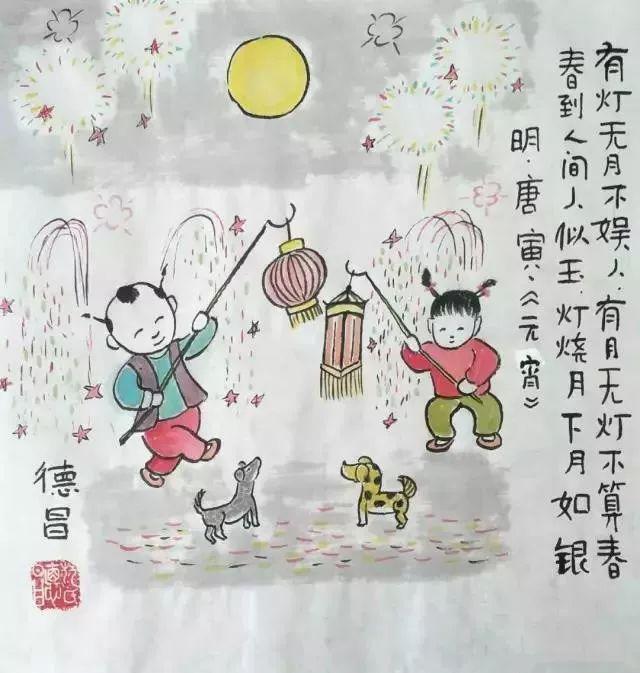 有灯无月不娱人.有月无灯不算春
春到人间人似玉.灯烧月下月如银
明.唐寅.《元宵》
德昌